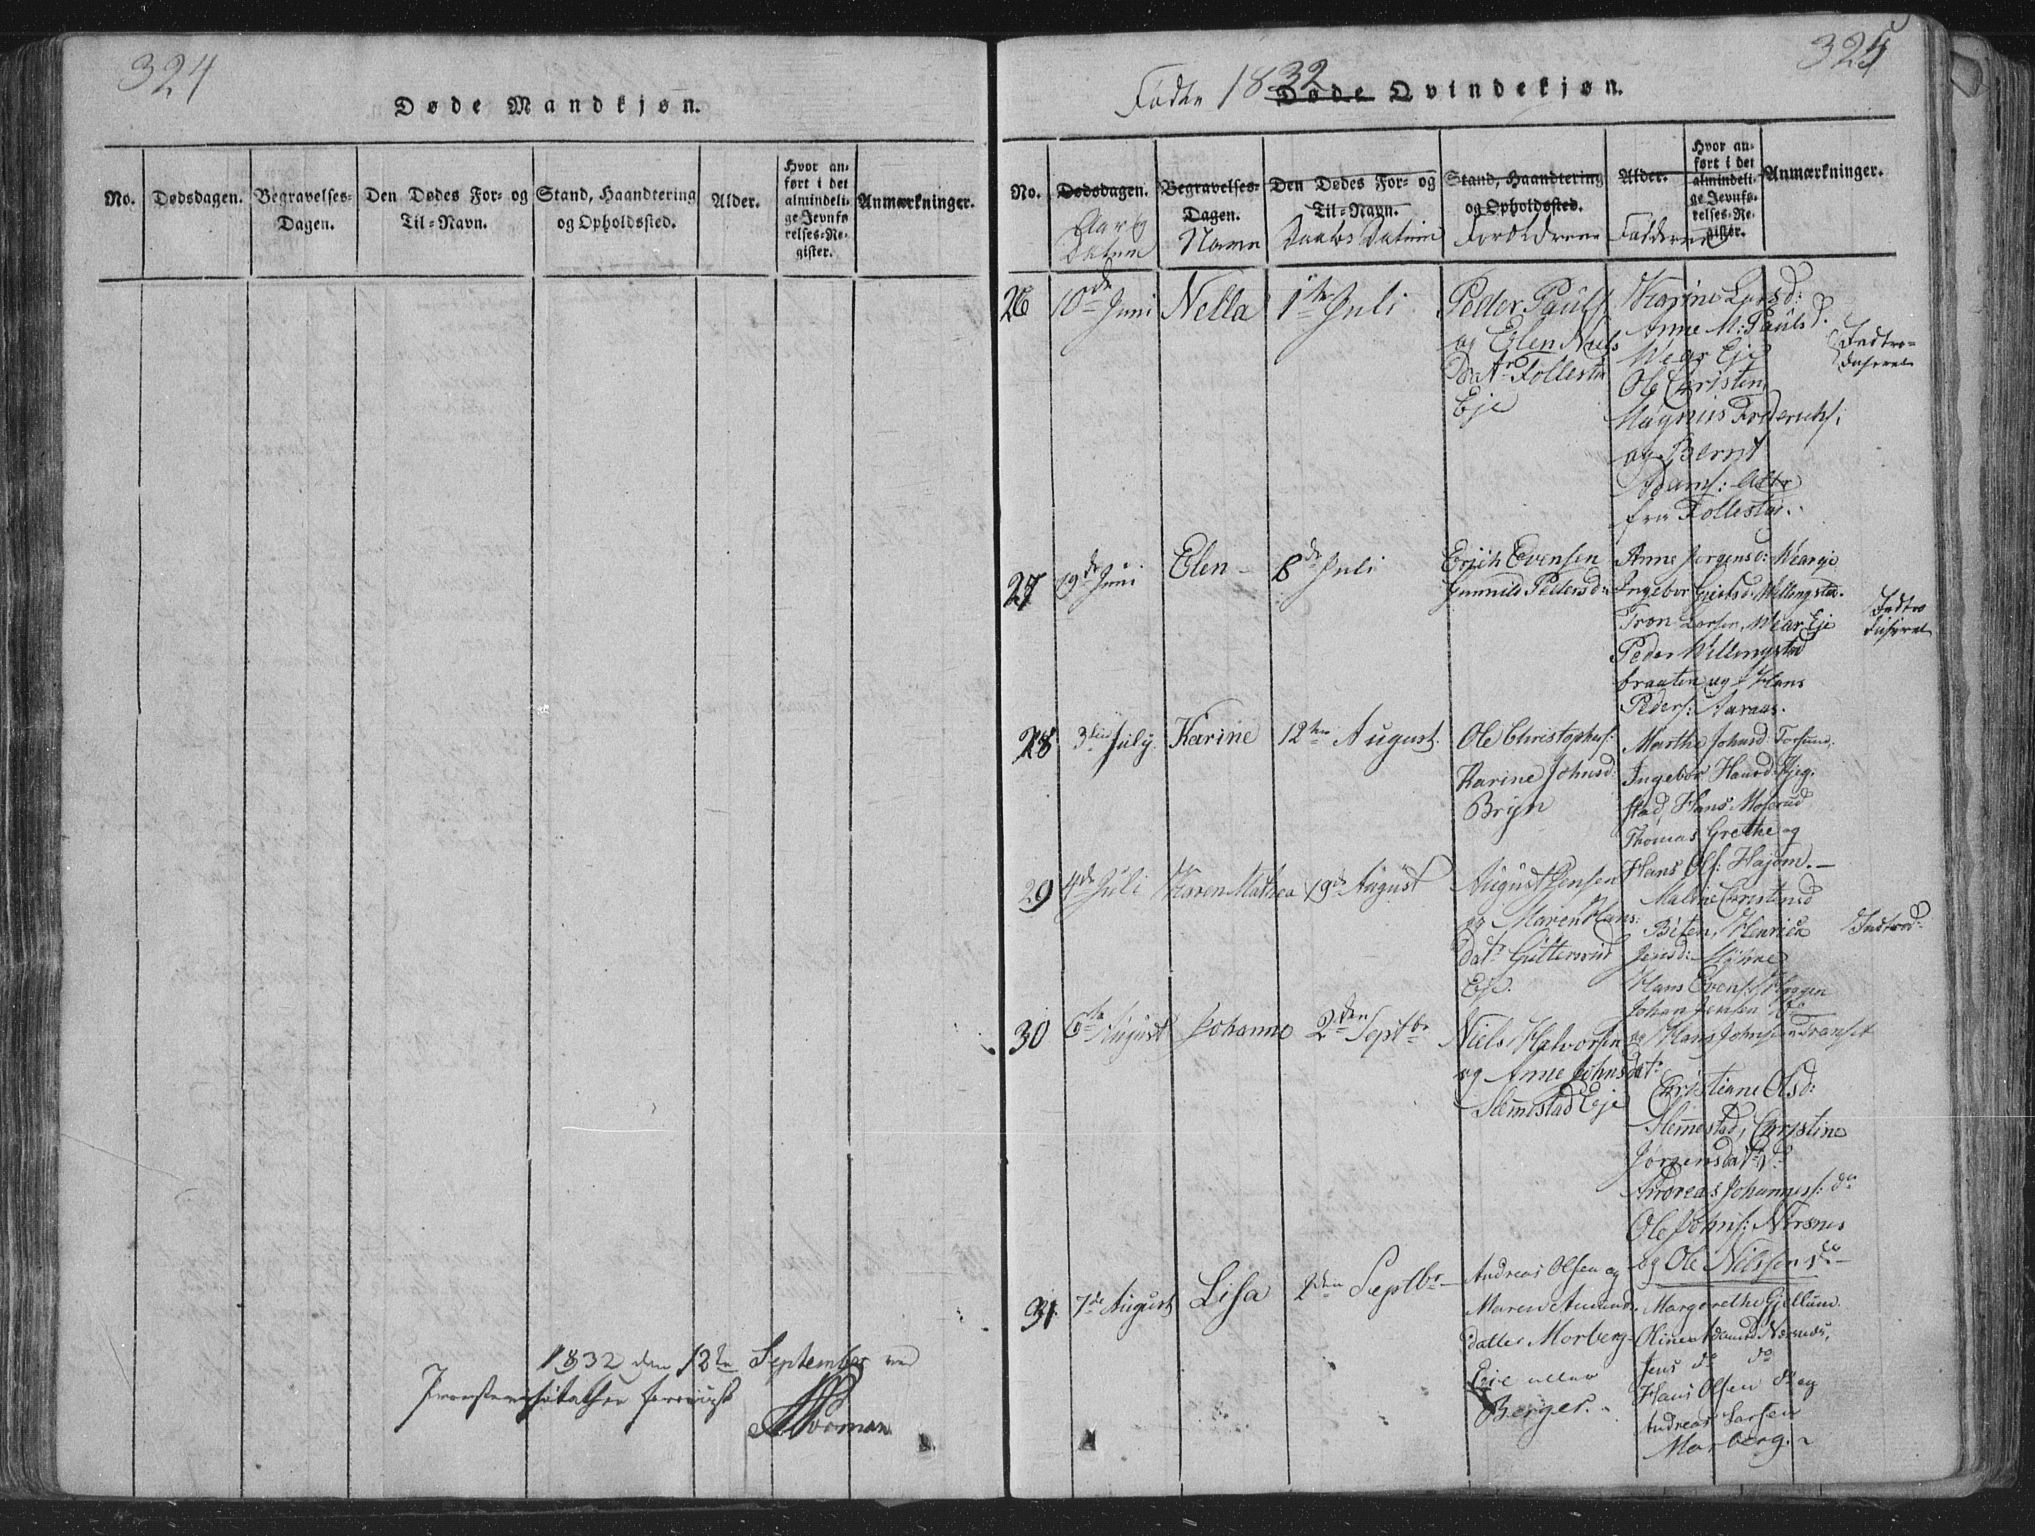 324
Døde Mandkjøn.
No.
Dødsdagen.
Begravelses-
Dagen.
Den Dødes For- og
Til-Navn.
Stand, Haandtering
og Opholdssted.
Alder.
Hvor an-
ført i det
almindeli-
ge Jevnfø-
relses-Re-
gister.
Anmærkninger.
1832 den 12te September ved
325
Fødte 1832 Døde Qvindekjøn.
No.
Dødsdagen.
Datum
Begravelses-
Dagen.
Navn
Den Dødes For- og
Til-Navn.
Daabs Datum
Stand, Haandtering
og Opholdssted.
Forældrene
Alder.
Faddere
Hvor an-
ført i det
almindeli-
ge Jevnfø-
relses-Re-
gister.
Anmærkninger.
26
10de Juni
Nella
1te Juli
Peder Pauls
og Elen Niels
datr Follestad
Eje
Karine Larsd:
Anne M: Paulsd.
Wear Eje
Ole Christen,
Magnus Frederichs:
og Bernt
Adams: Alle
fra Follestad.
Introduseret
27
19de Juni
Elen
8de Juli
Erich Evensen
Gunnild Pedersd:
Anne Jørgensd: Weareje
Ingebor Gjertsd: Willingstad.
Tron Larsen, Wear Eje
Peder Willingstad
braaten og Hans
Peders: Aaraas.
Introduseret
28
3die July.
Karine
12te August.
Ole Christophs:
Karine Johnsd:
Bryn
Marthe Johnsd:
Ingebor Hansd:
stad, Hans Moserud
Thomas Grethe og
Hans Ols: Hajem.
29
4de Juli
Karen Mathea
19de August
August Jensen
og Maren Hans:
datr Gutterud
Eje.
Malene Christensd
Biten, Henrica
Jensd:
Hans Evens: Haggen
Johan Jensen
og Hans Johnsen Transet
Introd:
30
6te August
Johanne
2den Septbr
Niels Halvorsen
og Anne Johnsdatr
Slemestad Eje
Christiane Olsd:
Slemestad, Christine
Jørgensdatr do
Andreas Johanness: do
Ole Johns: Nersnes
og Ole Nilssen do
31
7de August
Lisa
2den Septbr
Andreas Olsen og
Maren Amund-
datter Morberg-
Eje eller
Berger.
Margrethe Gjellum.
Oline Adamsd Nersnes,
Jens do do
Hans Olsen do og
Andreas Larsen
Morberg.